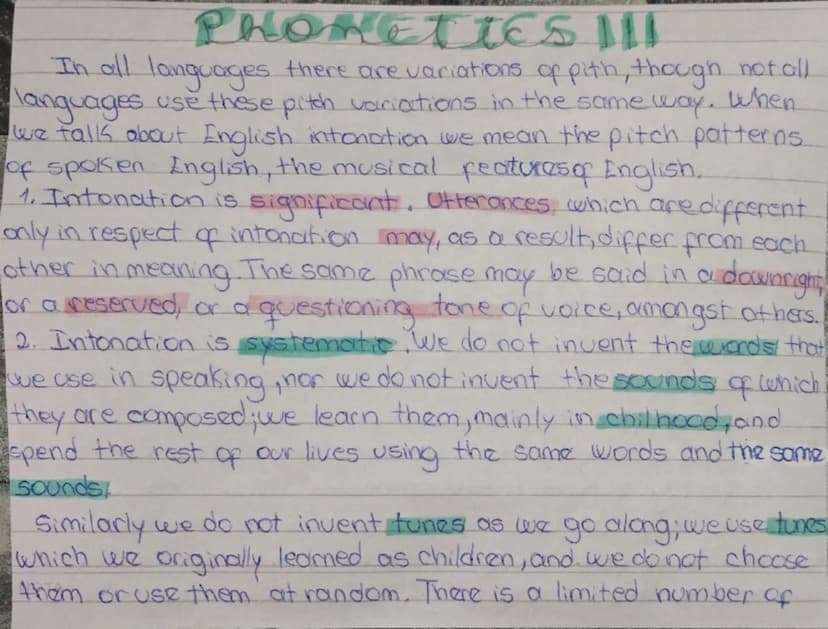 PHONETICS III
In all languages there are variations of pith, though not all
languages use these pitch variations in the same way. When
we talk about English intonation we mean the pitch patterns
of spoken English, the musical features of English.
1. Intonation is significant. Utterances which are different
only in respect of intonation may, as a result, differ from each
other in meaning. The same phrase may be said in a downright,
or a reserved, or a questioning tone of voice, amongst others.
2. Intonation is systematic. We do not invent the words that
we use in speaking, nor we do not invent the sounds of which
they are composed; we learn them, mainly in chilhood, and
spend the rest of our lives using the same words and the same
sounds.
Similarly we do not invent tunes as we go along; we use tunes
which we originally learned as children, and we do not choose
them or use them at random. There is a limited number of